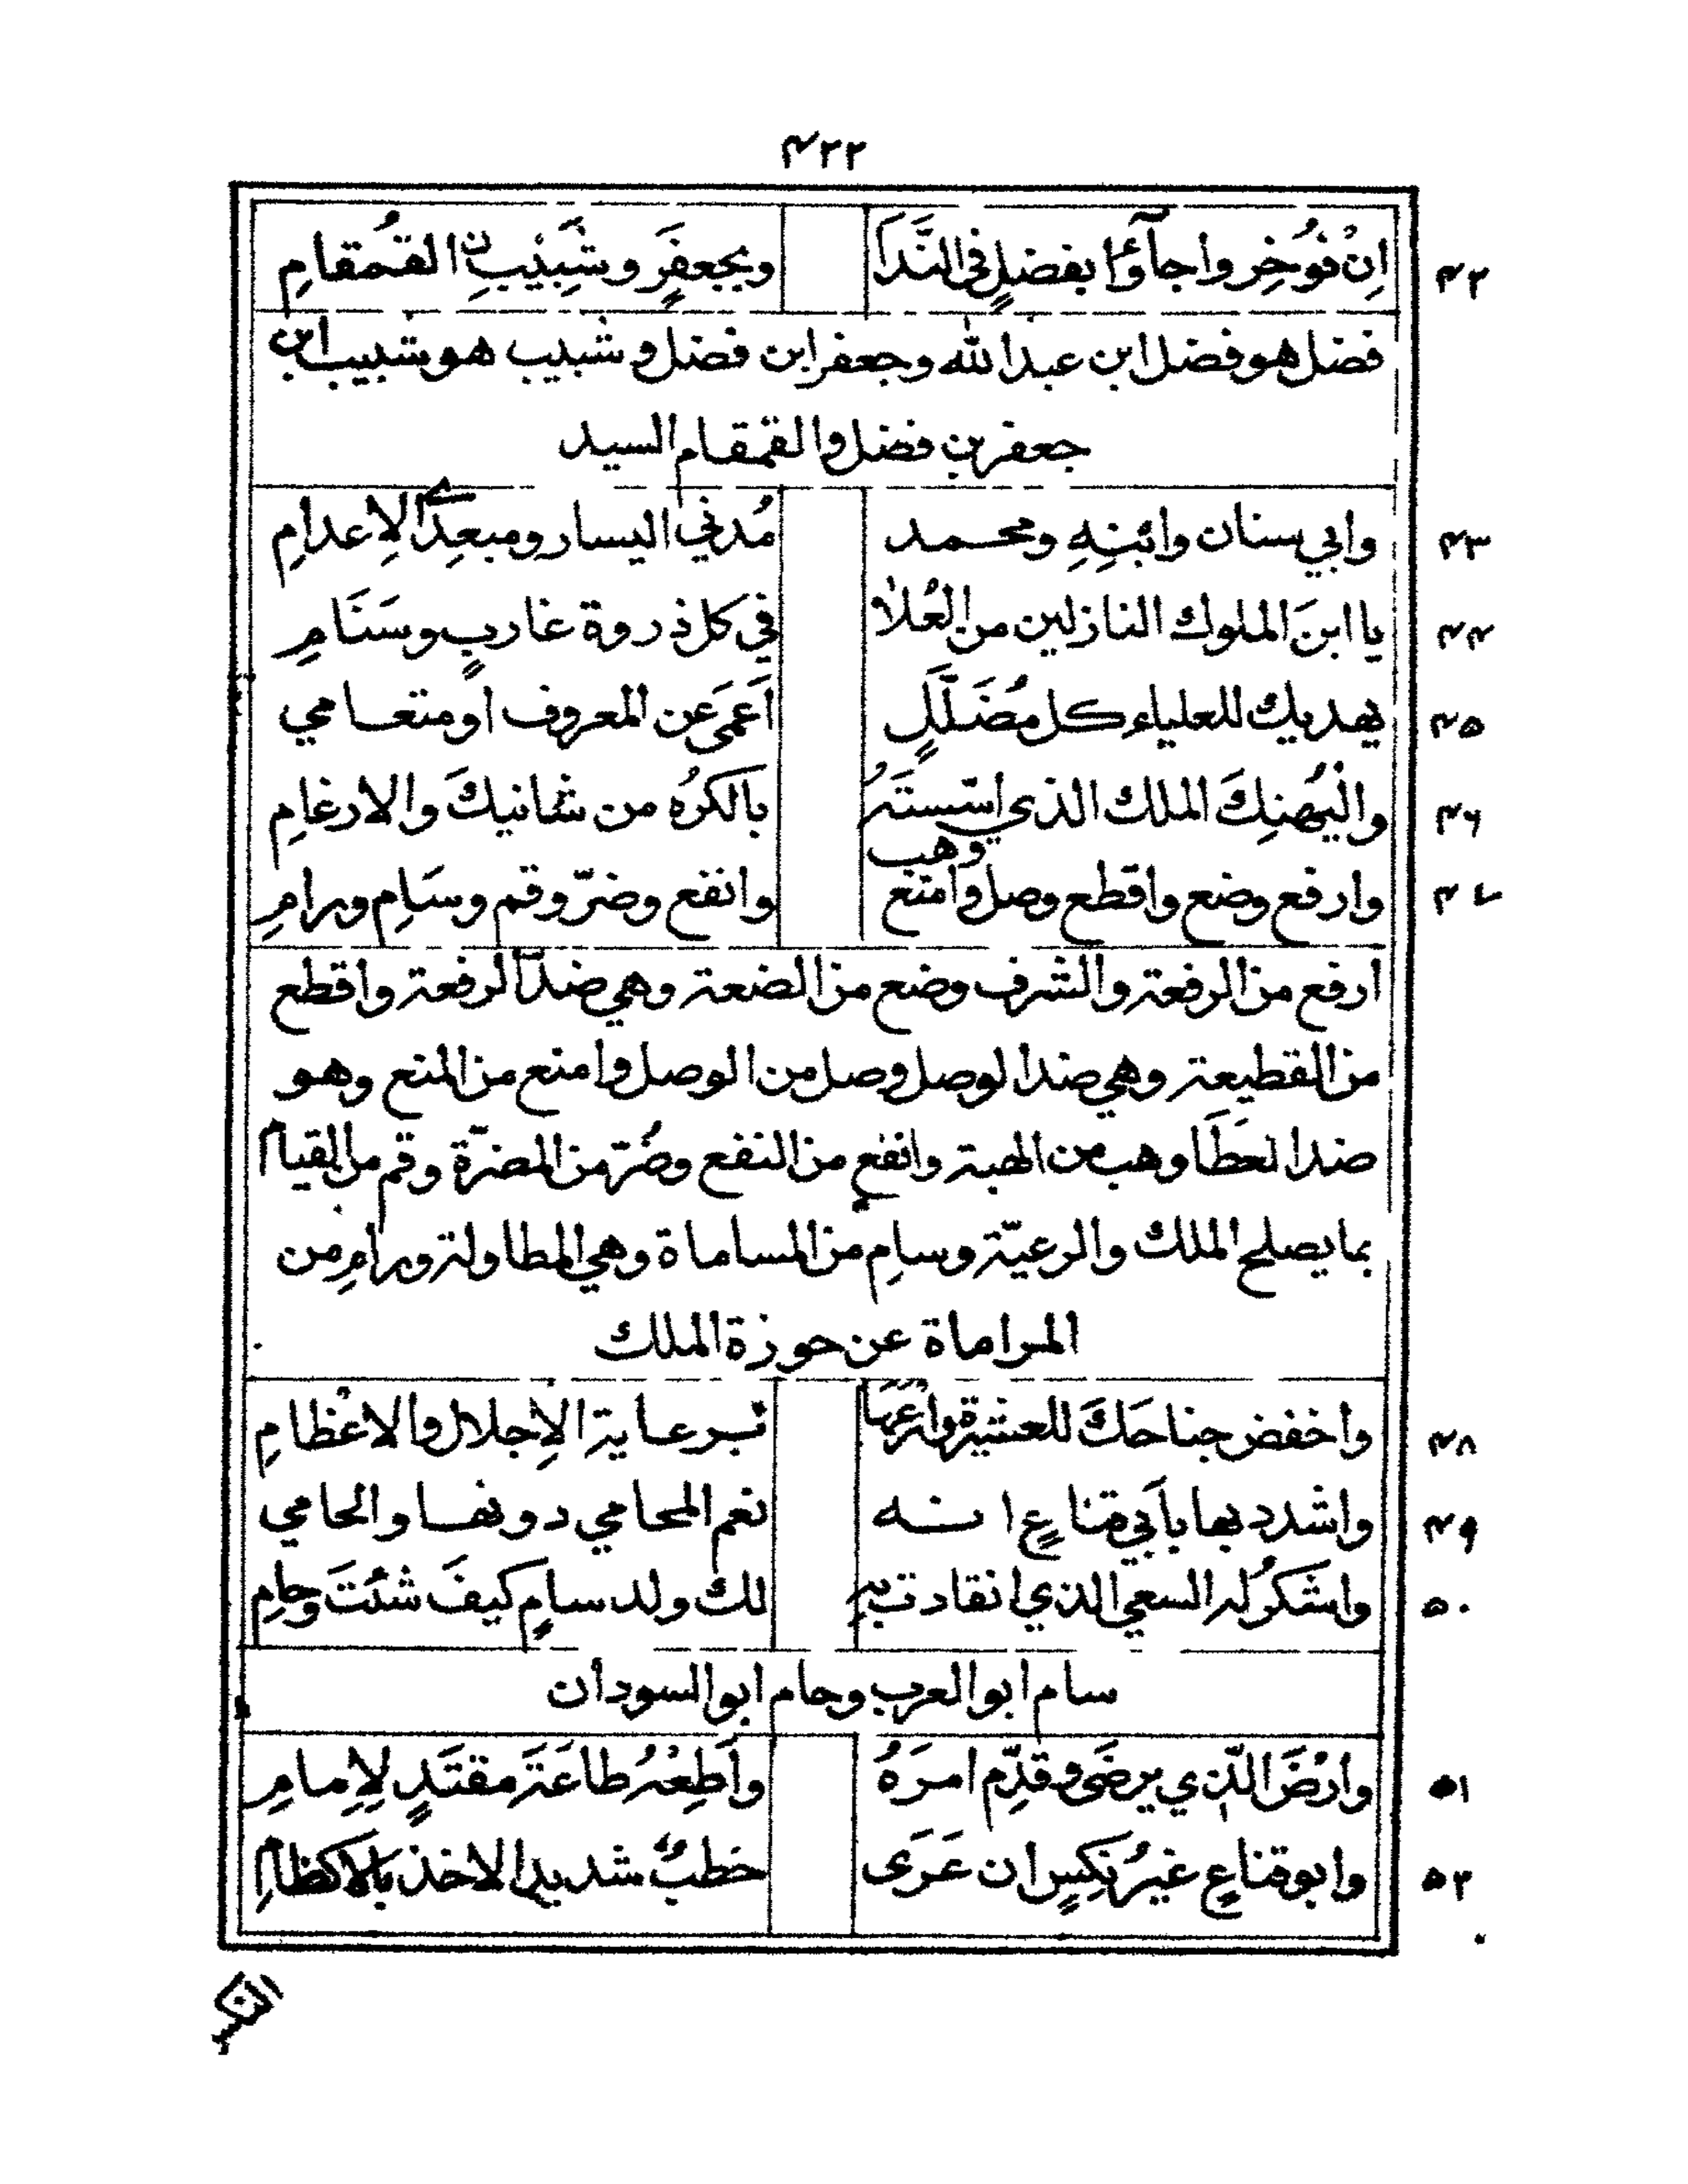 ۴۲۲
۴۲ اِنْ فُوخِروا جآؤا بفضلٍ في النَّدَا وبجعفرٍ وشَبِيْبِنِ القُمقامِ
فضل هو فضل ابن عبدالله وجعفر ابن فضل وشبيب هو شبيب ابن
جعفر بن فضل والقمقام السيد
۴۳ وابي سنان وابْنِهِ ومحمد مُدني اليسار ومبعِدِ الاِعدامِ
۴۴ يا ابنَ الملوك النازلين من العُلا في كل ذروة غاربٍ وسَنَامِ
۴۵ يهديك للعلياء كل مُضَلَّلٍ اَعمَى عن المعروف او متعامي
۴۶ واليَهنِكَ الملك الذي اسّستَهُ بالكُرُه من شانيكَ والارغامِ
۴۷ وارفع وضع واقطع وصل وامنع وهب وانفع وضرّ وقم وسَامِ ورامِ
ارفع من الرفعة والشرف وضع من الضعة وهي ضد الرفعة واقطع
من القطيعة وهي ضد الوصل وصل من الوصل وامنع من المنع وهو
ضد العَطَا وهب من الهبة وانفع من النفع وضُرّ من المضرّة وقم من القيام
بما يصلح الملك والرعيّة وسامِ من المساماة وهي المطاولة ورامِ من
المراماة عن حوزة الملك
۴۸ واخفض جناحَكَ للعشيرة وارْعَهَا برعاية الاِجلال والاعْظامِ
۴۹ واشدد بها باَبي قناعٍ انه نعم المحامي دونها والحامي
۵۰ واشكُر له السعي الذي انقادت به لك ولد سامٍ كيفَ شئتَ وحامِ
سام ابو العرب وحام ابو السودان
۵۱ وارْضَ الذي يرضَى وقدِّم امرَهُ واَطِعْهُ طاعَةَ مقتَدٍ لِاِمامِ
۵۲ وابو قناعٍ غيرُ نِكِسٍ ان عَرَى خطبٌ شديد الاخذ بالاكظامِ